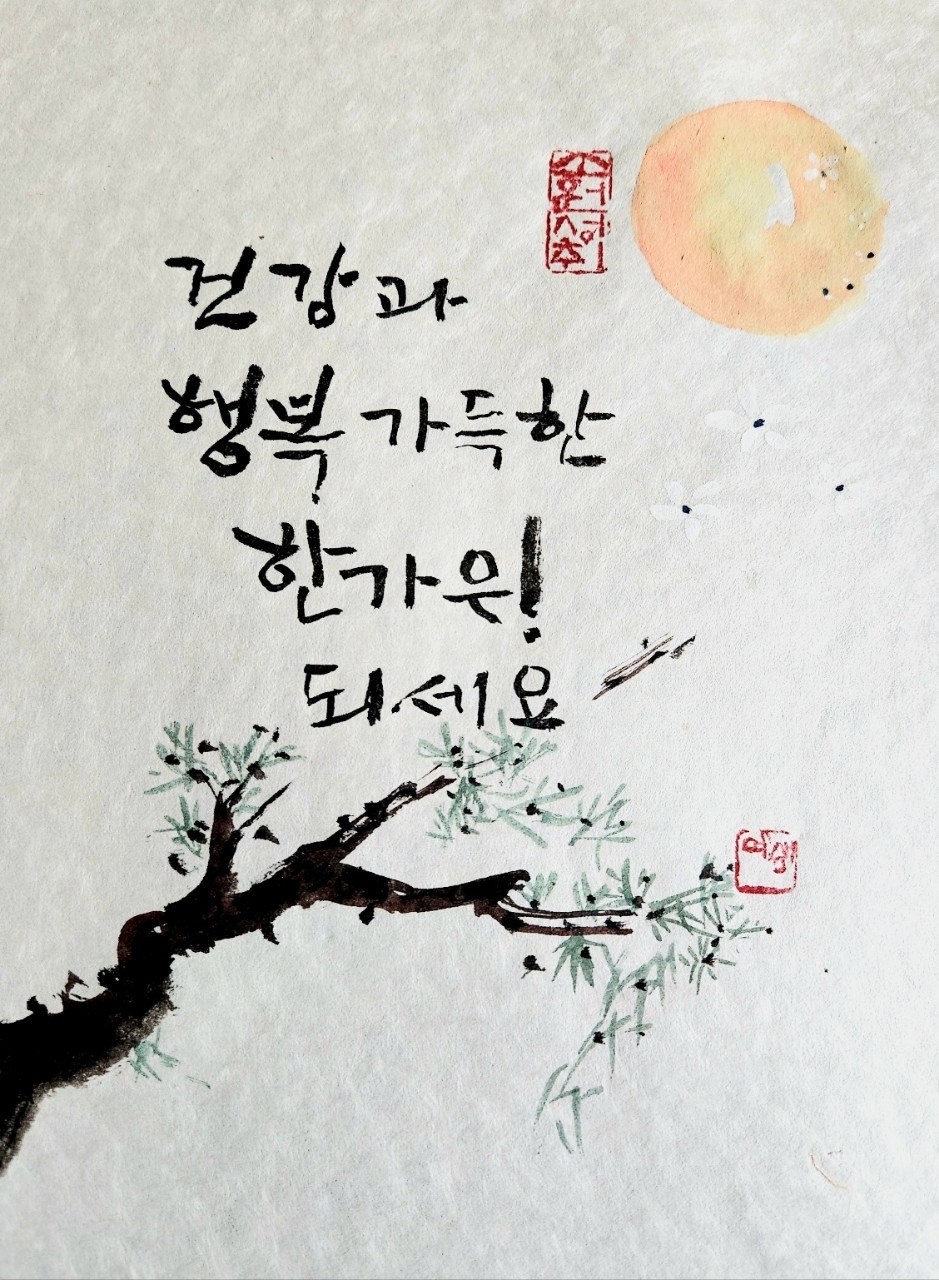 건강과
행복 가득한
한가위!
되세요